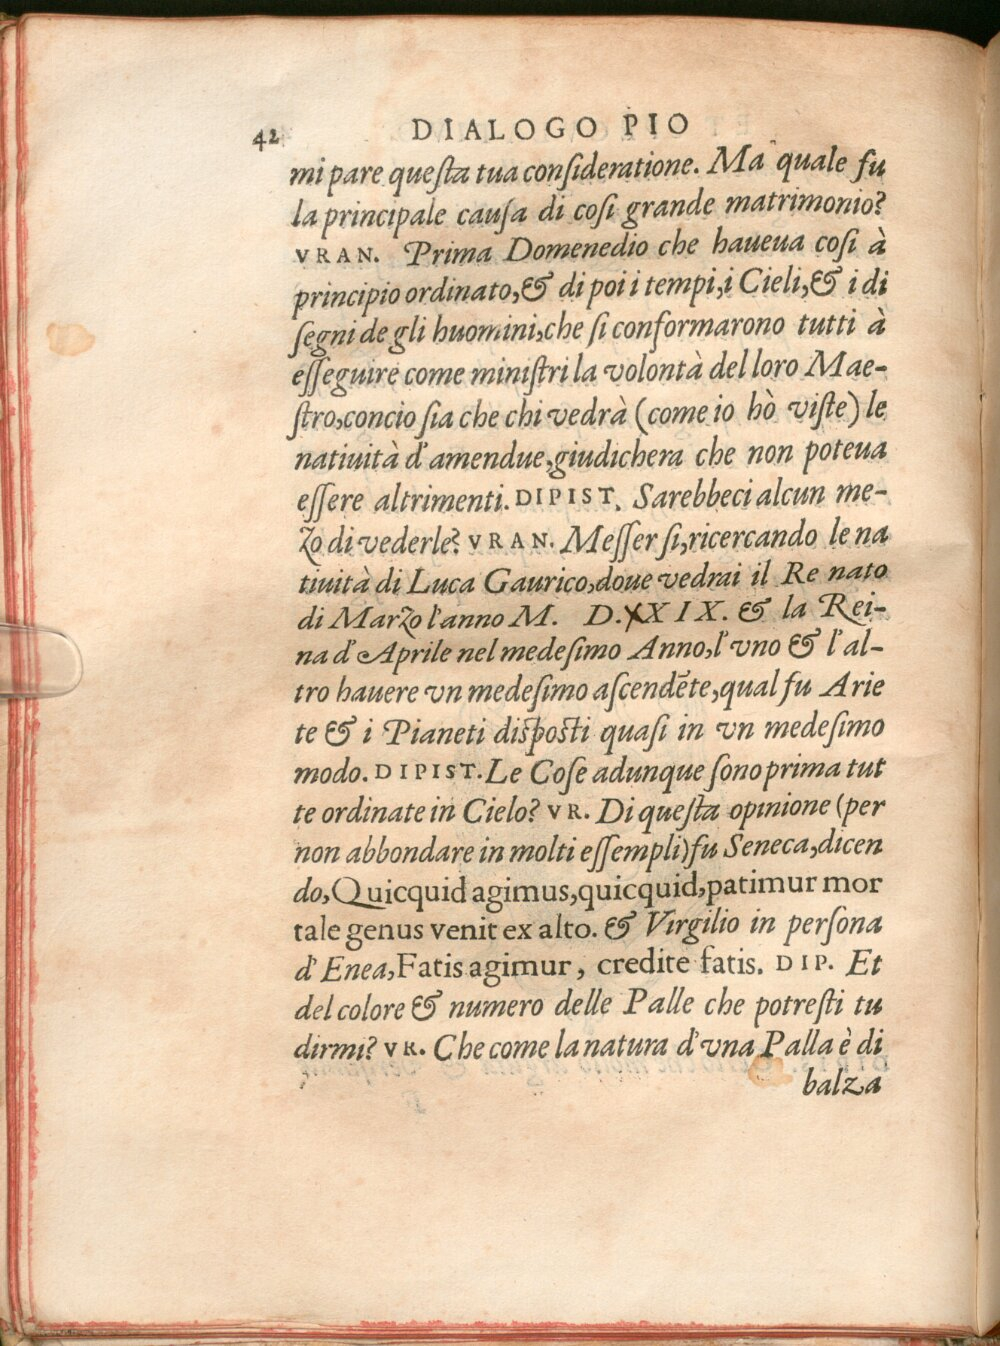 42 DIALOGO PIO
mi pare questa tua consideratione. Ma quale fu
la principale causa di cosi grande matrimonio?
VRAN. Prima Domenedio che haueua cosi à
principio ordinato, & di poi i tempi, i Cieli, & i di
segni de gli huomini, che si conformarono tutti à
esseguire come ministri la volontà del loro Mae-
stro, concio sia che chi vedrà (come io hò viste) le
natiuità d'amendue, giudichera che non poteua
essere altrimenti. DIPIST. Sarebbeci alcun me-
zo di vederle? VRAN. Messer si, ricercando le na
tiuità di Luca Gaurico, doue vedrai il Re nato
di Marzo l'anno M. D. XXIX. & la Rei-
na d'Aprile nel medesimo Anno, l'vno & l'al-
tro hauere vn medesimo ascendẽte, qual fu Arie
te & i Pianeti disposti quasi in vn medesimo
modo. DIPIST. Le Cose adunque sono prima tut
te ordinate in Cielo? VR. Di questa opinione (per
non abbondare in molti essempli) fu Seneca, dicen
do, Quicquid agimus, quicquid, patimur mor
tale genus venit ex alto. & Virgilio in persona
d'Enea, Fatis agimur, credite fatis. DIP. Et
del colore & numero delle Palle che potresti tu
dirmi? VR. Che come la natura d'vna Palla è di
balza